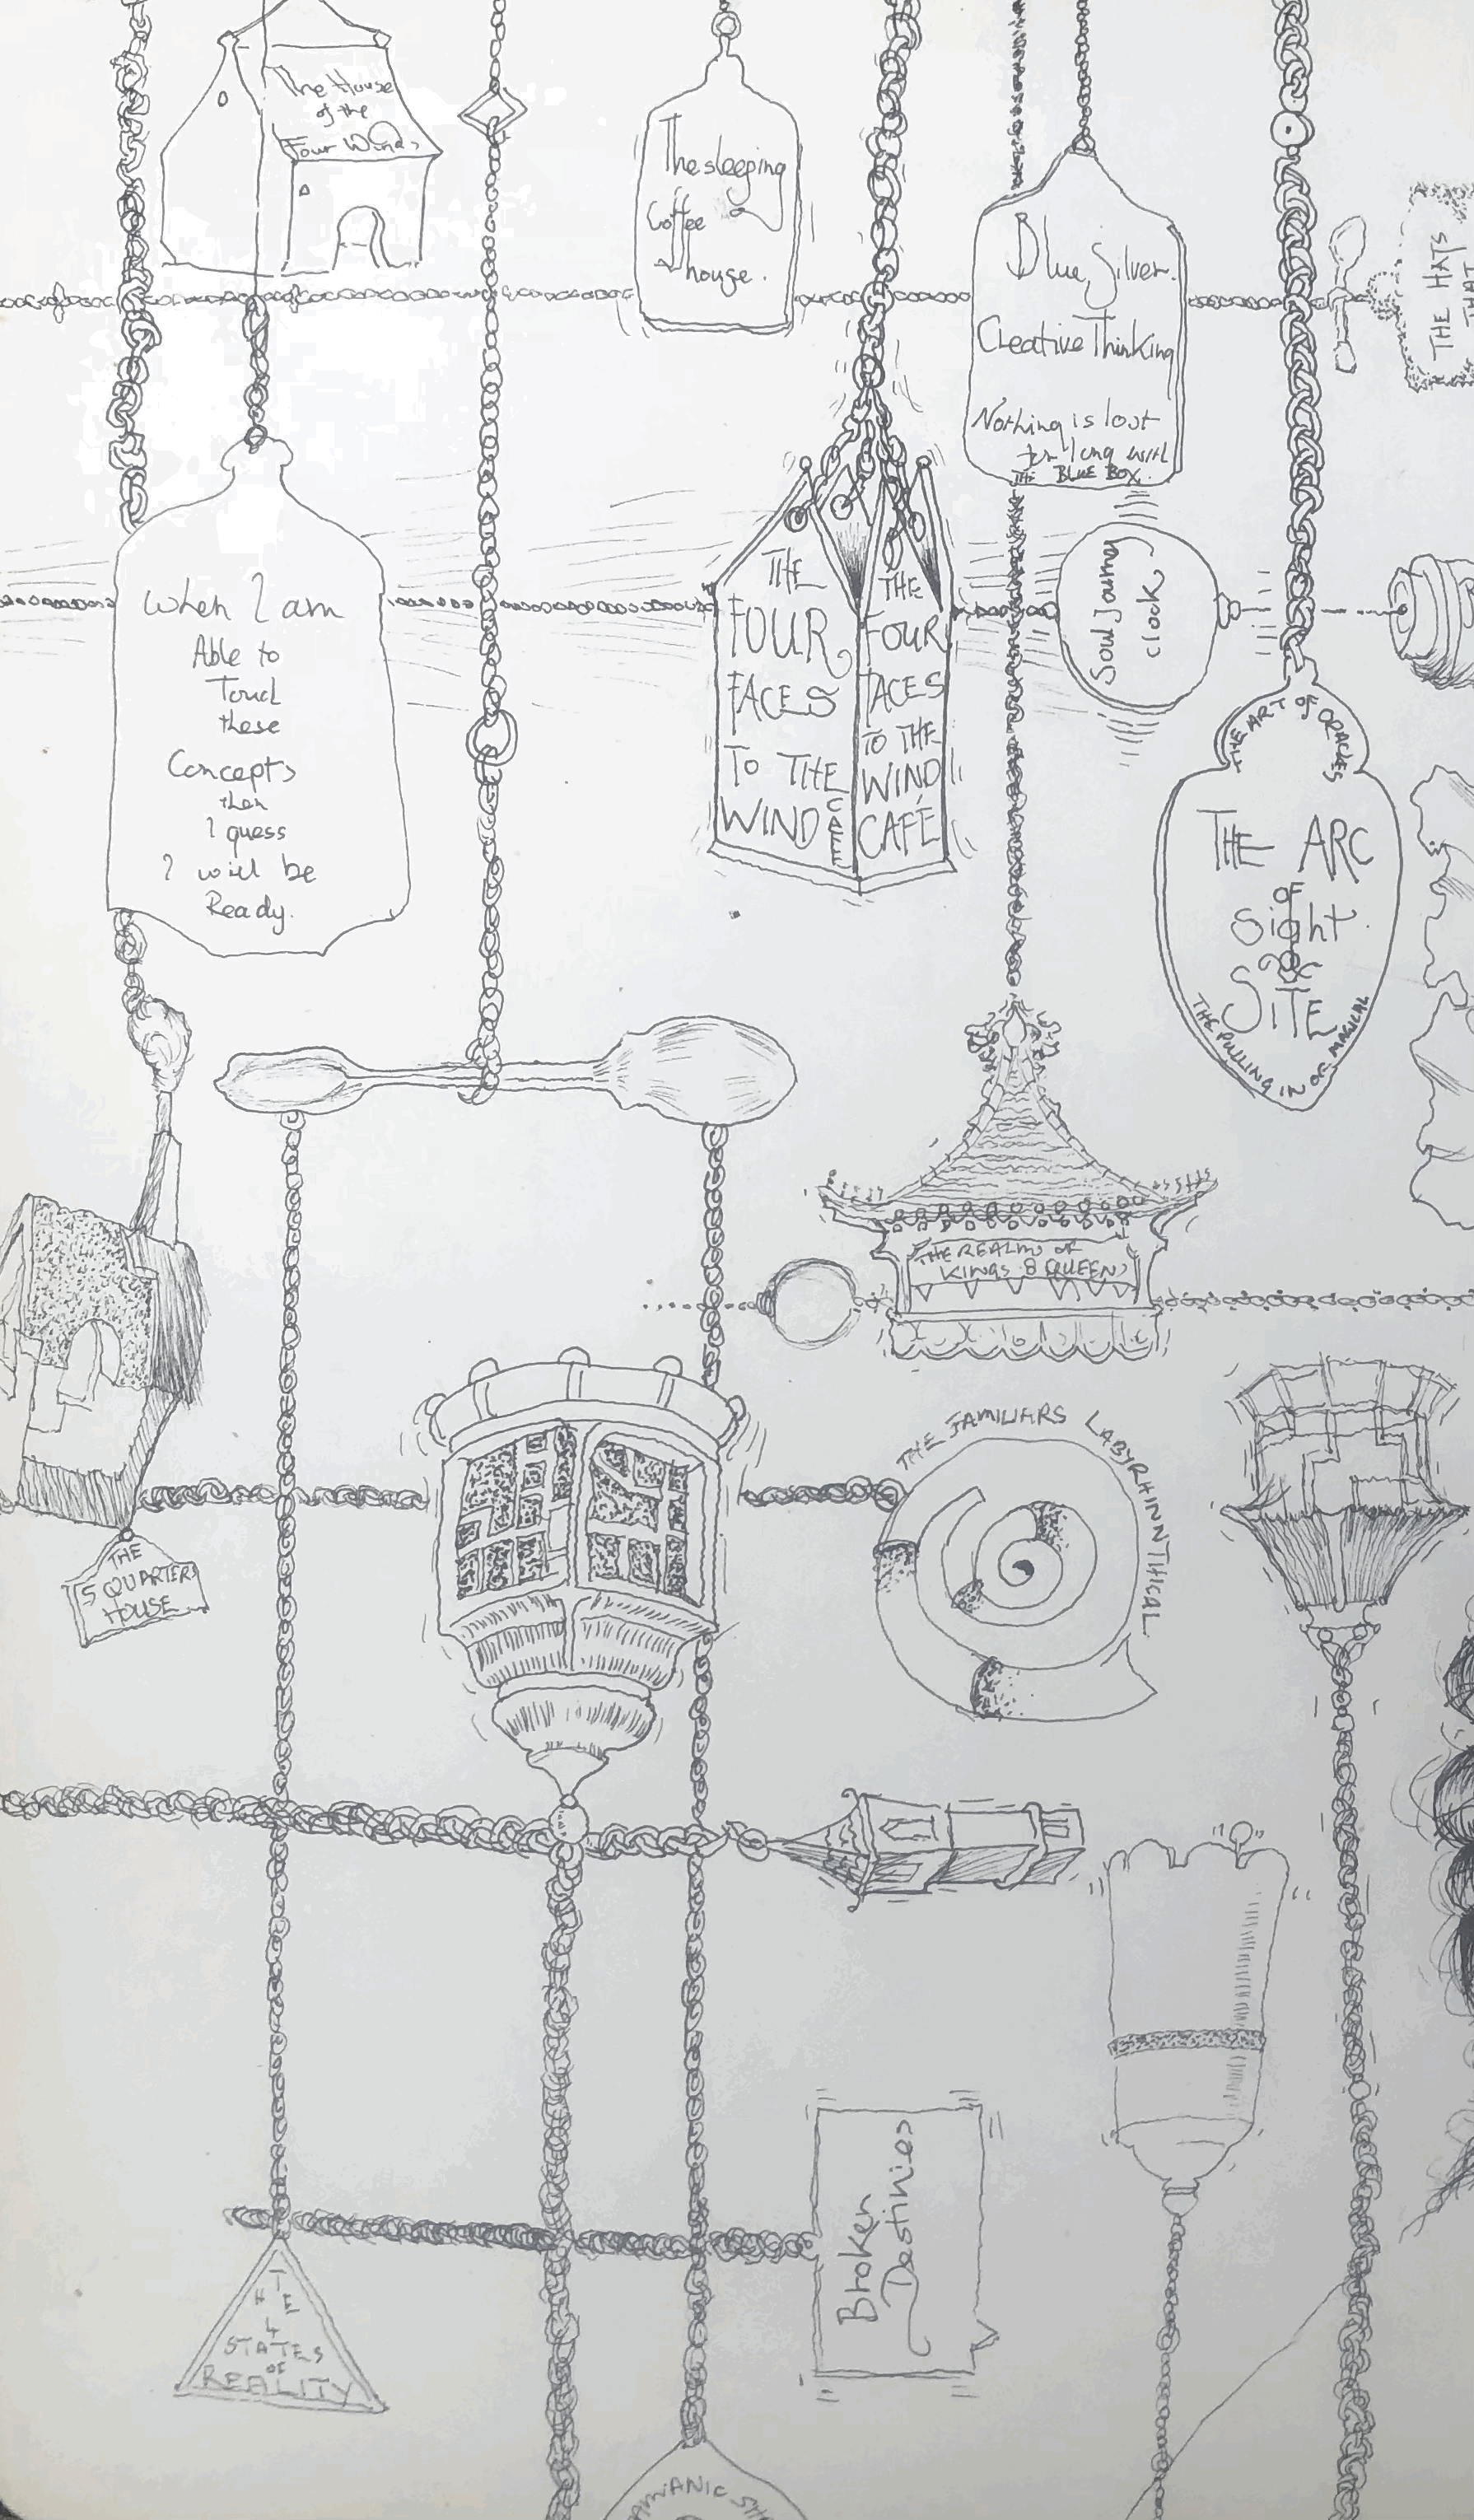 The House
of the
Four Winds
The sleeping
Coffee
house.
Blue Silver.
Creative Thinking
Nothing is lost
for long with
THE BLUE BOX.
THE HATS
THAT
When I am
Able to
Touch
these
Concepts
then
I guess
I will be
Ready.
THE
FOUR
FACES
TO THE
WIND
CAFE
THE
FOUR
FACES
TO THE
WIND
CAFÉ
Soul Journey
Clock
THE ART OF ORACLES
THE ARC
OF
Sight
SITE
THE PULLING IN OF MAGICAL
THE REALMS OF
KINGS & QUEENS
THE FAMILIARS LABYRHINNTHICAL
THE
5 QUARTERS
HOUSE
Broken
Destinies
THE
4
STATES
OF
REALITY